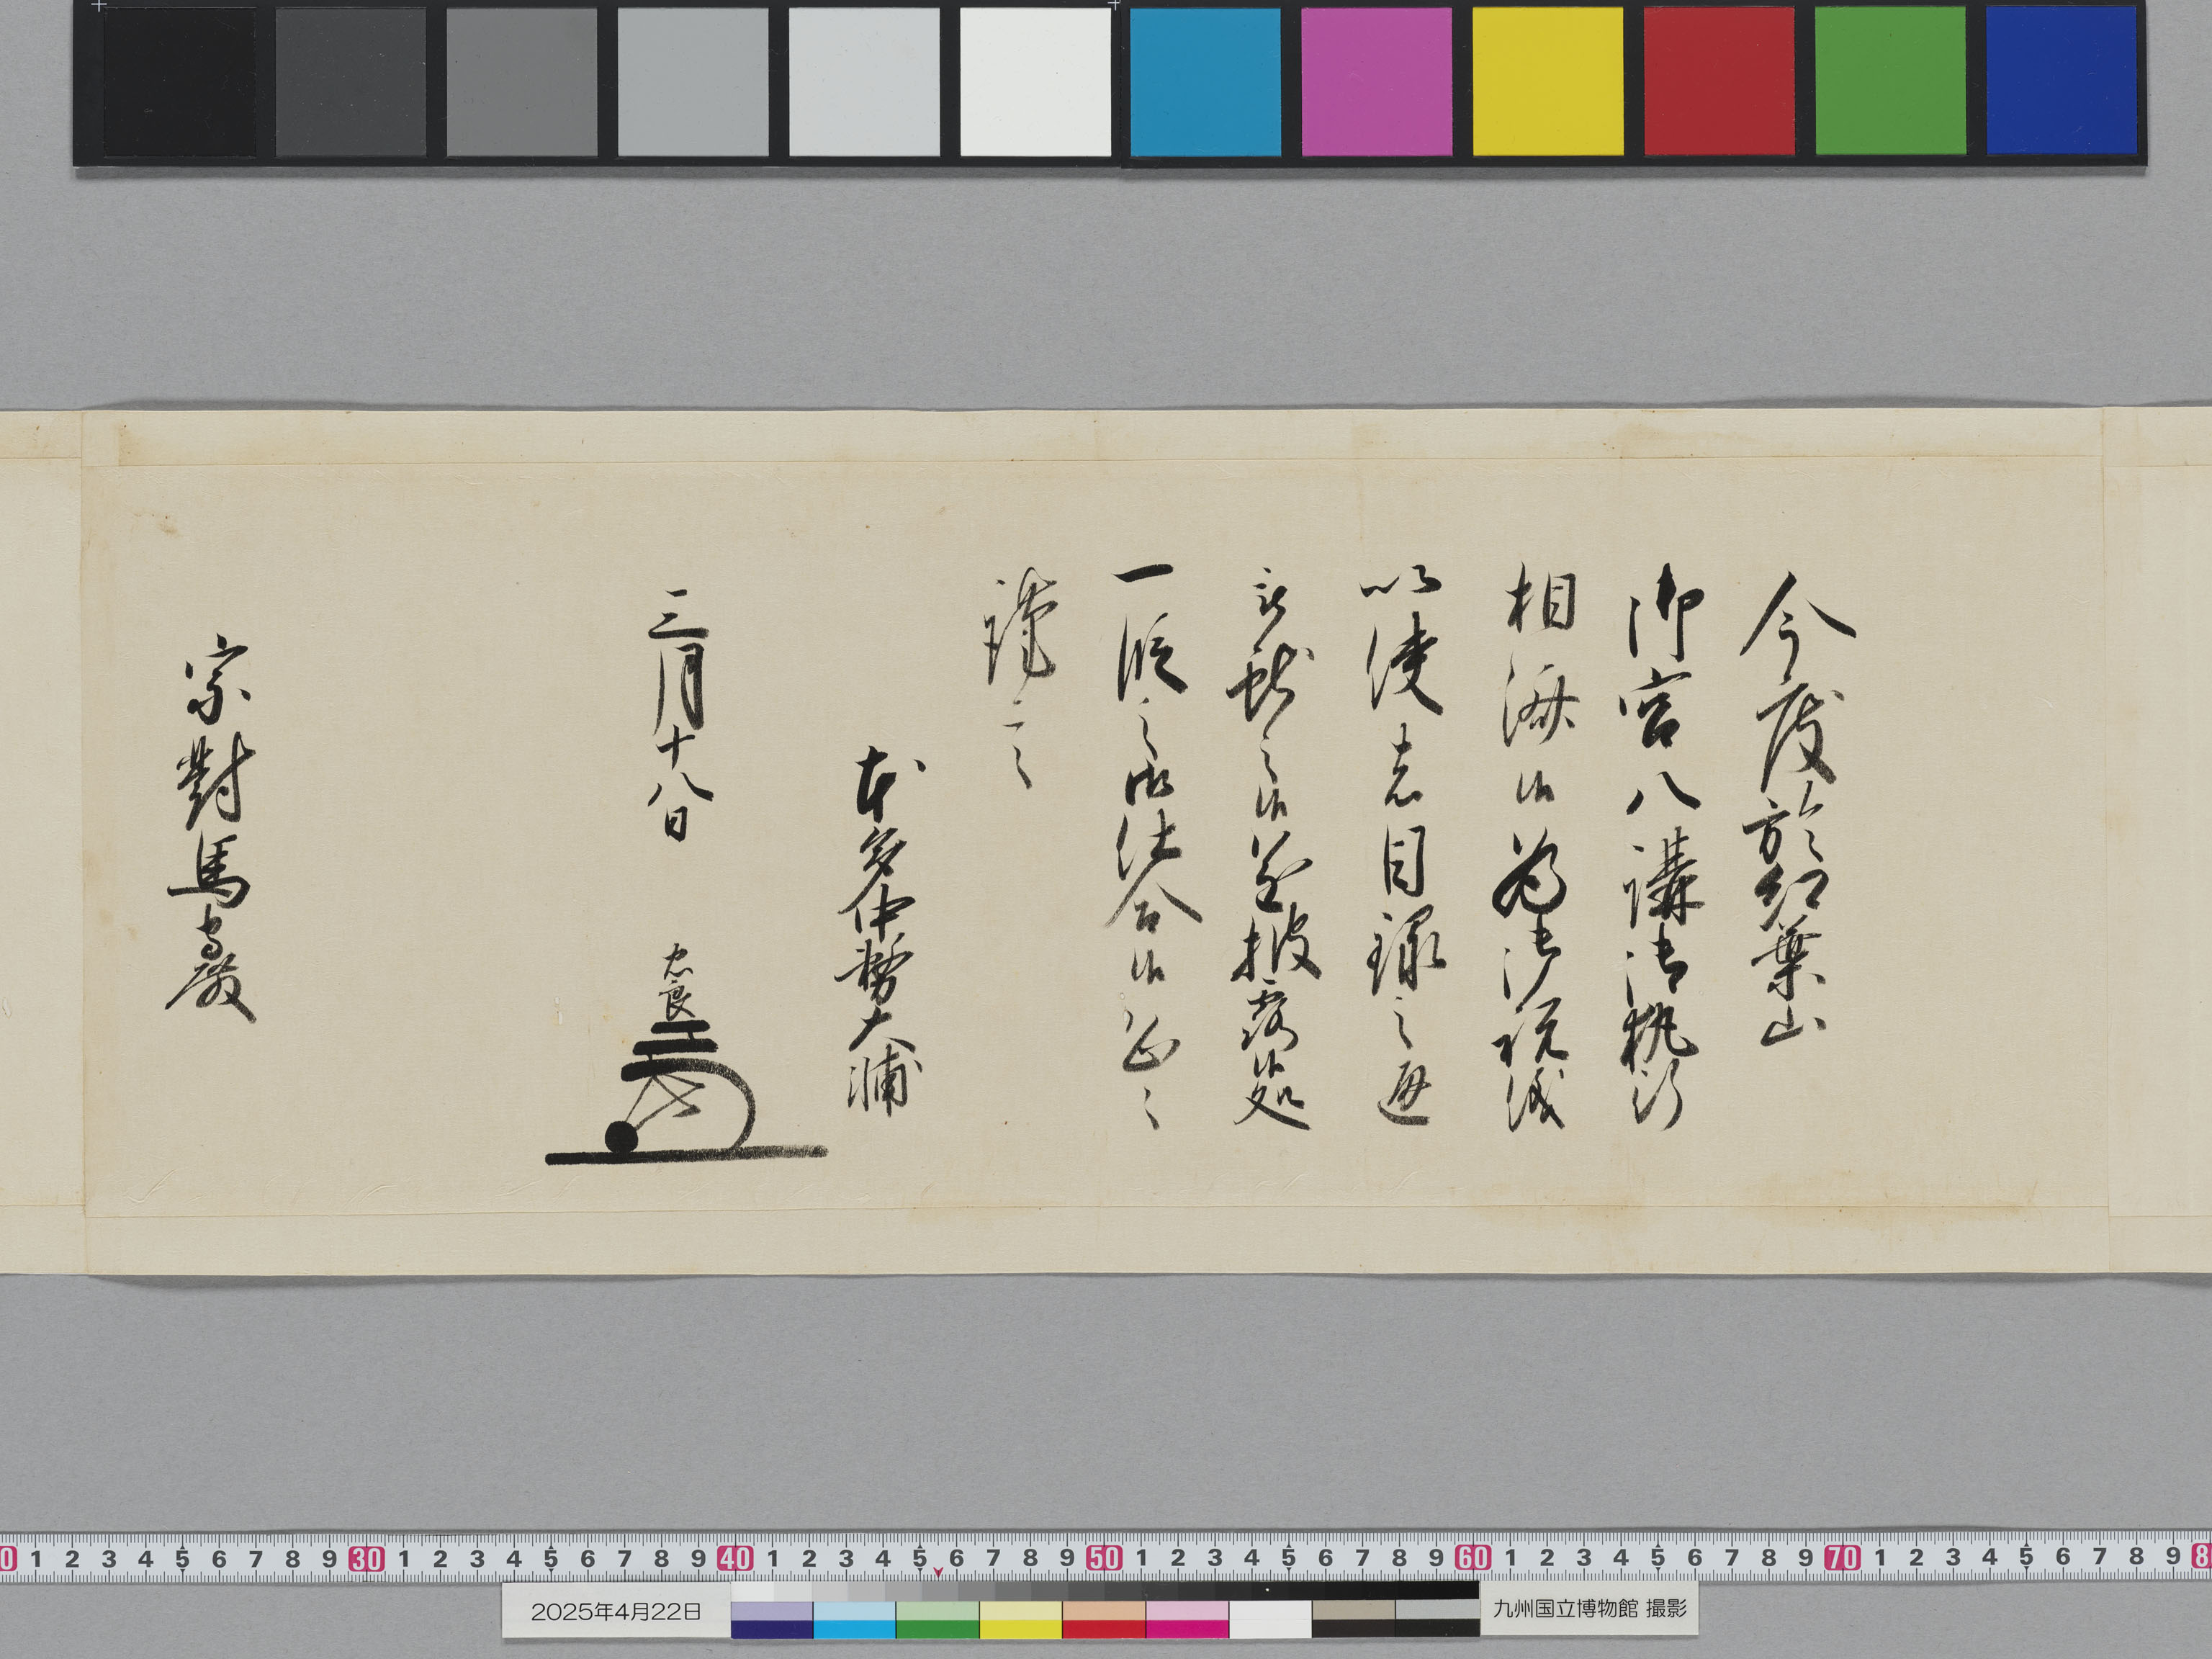 今度於紅葉山
御宮八講法執行
相済候為御祝儀
以使者目録之通
被献之候遂披露候処
一段之御仕合候恐々
謹言
本多中務大輔
三月十八日 忠良
宗對馬守殿
0 1 2 3 4 5 6 7 8 9 30 1 2 3 4 5 6 7 8 9 40 1 2 3 4 5 6 7 8 9 50 1 2 3 4 5 6 7 8 9 60 1 2 3 4 5 6 7 8 9 70 1 2 3 4 5 6 7 8 9 8
2025年4月22日
九州国立博物館 撮影